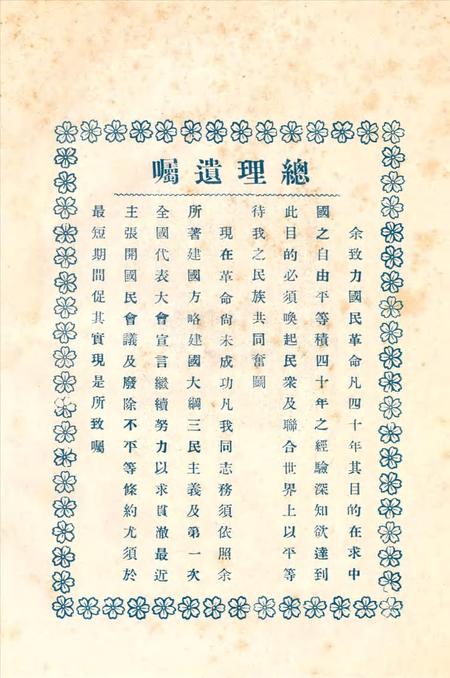 總理遺囑
余致力國民革命凡四十年其目的在求中
國之自由平等積四十年之經驗深知欲達到
此目的必須喚起民眾及聯合世界上以平等
待我之民族共同奮鬭
現在革命尚未成功凡我同志務須依照余
所著建國方略建國大綱三民主義及第一次
全國代表大會宣言繼續努力以求貫澈最近
主張開國民會議及廢除不平等條約尤須於
最短期間促其實現是所致囑